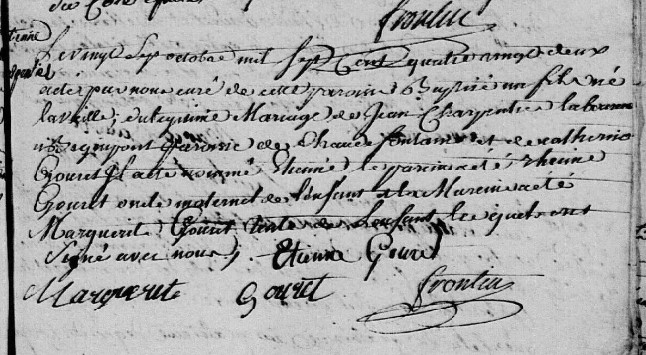 frontin
Le vingt Sept octobre mil Sept Cent quatre vingt deux
a été par nous curé de cette paroisse Baptisé un fils né
la veille, du légitime Mariage de Jean Charpentier
paroisse de Chaude fontaine et de catherine
Gouret Il a été nommé Etienne le parein a été Etienne
Gouret oncle maternel de l'enfant et la Mareine a été
Marguerit Gouret tente de L'enfant lesquels ont
Signé avec nous, Etienne Gouret
Marguerite Gouret frontin